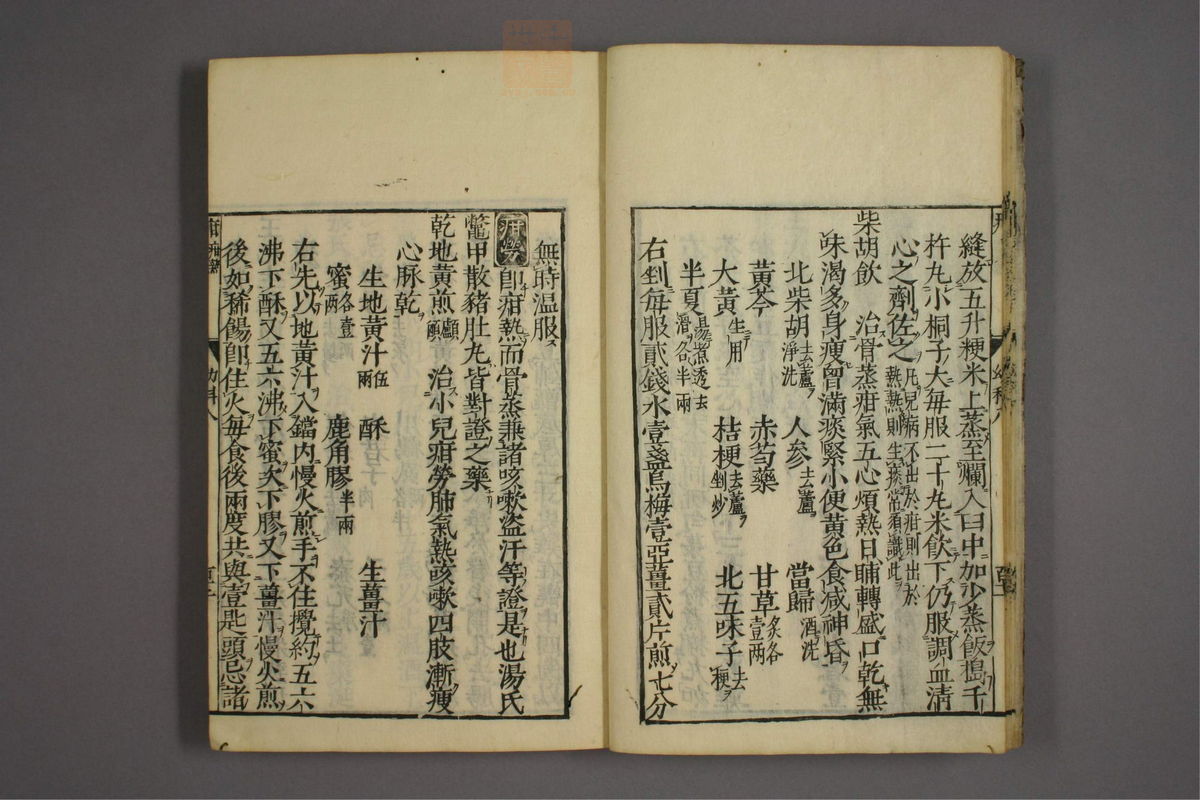 縫放五升粳米上蒸至爛入臼中加少蒸飯搗千
杵丸小桐子大每服二十丸米飲下仍服調血清
心之劑佐之凡兒病不出於疳則出於熱熱則生痰常須識此
柴胡飲 治骨蒸疳氣五心煩熱日晡轉盛口乾無
味渴多身瘦胷滿痰緊小便黃色食减神昏
北柴胡去蘆淨洗 人參去蘆 當歸酒洗
黃芩 赤芍藥 甘草炙各壹兩
大黃生用 桔梗去蘆剉炒 北五味子去梗
半夏湯煮透去滑各半兩
右剉每服貳錢水壹盞烏梅壹亞薑貳片煎七分
無時温服
疳勞 卽疳熱而骨蒸兼諸咳嗽盜汗等證是也湯氏
鼈甲散豬肚丸皆對證之藥
乾地黃煎顱顖 治小兒疳勞肺氣熱咳嗽四肢漸瘦
心脉乾
生地黃汁伍兩 酥 生薑汁
蜜各壹兩 鹿角膠半兩
右先以地黃汁入鐺内慢火煎手不住攪約五六
沸下酥又五六沸下蜜次下膠又下薑汁慢火煎
後如稀餳卽住火每食後兩度共與壹匙頭忌諸